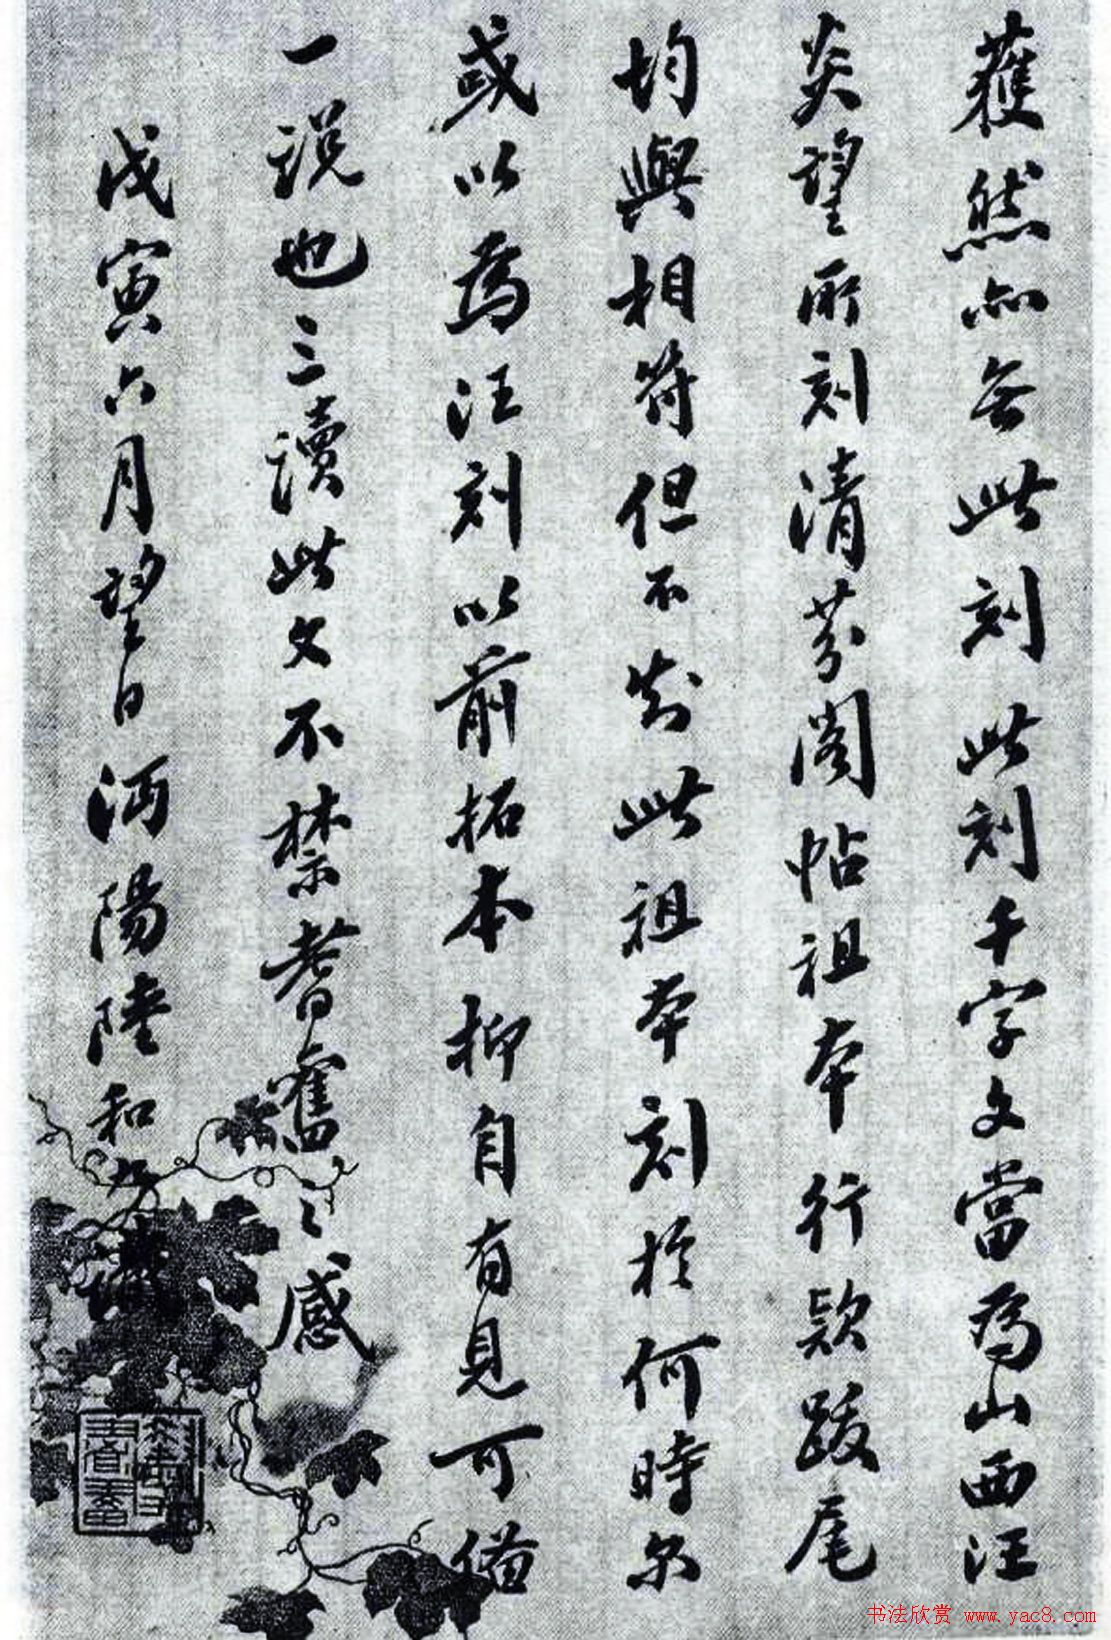 獲然亦無此刻此刻千字文當為山西汪
炎望所刻清芬閣帖祖本行款跋尾
均與相符但不知此祖本刻於何時尔
或以為汪刻以前拓本抑自有見可備
一説也三讀此文不禁耆舊之感
戊寅六月望日沔陽陸和九
书法欣赏 www.yac8.com